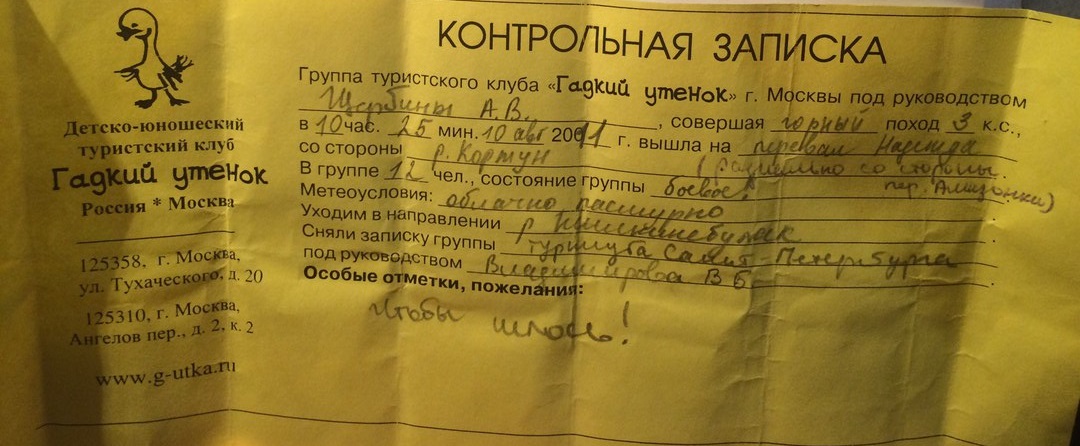 КОНТРОЛЬНАЯ ЗАПИСКА
Группа туристского клуба «Гадкий утенок» г. Москвы под руководством
Щербины А.В., совершая горный поход 3 к.с.,
в 10 час. 25 мин. 10 авг 2011 г. вышла на перевал Надежда
со стороны р. Кортун (радиально со стороны
пер. Амазонки)
В группе 12 чел., состояние группы боевое!
Метеоусловия: облачно, пасмурно
Уходим в направлении р
Сняли записку группы турклуба Санкт-Петербурга
под руководством Владимирова В Б
Особые отметки, пожелания:
Чтобы шлось!
Детско-юношеский
туристский клуб
Гадкий утенок
Россия * Москва
125358, г. Москва,
ул. Тухаческого, д. 20
125310, г. Москва,
Ангелов пер., д. 2, к. 2
www.g-utka.ru